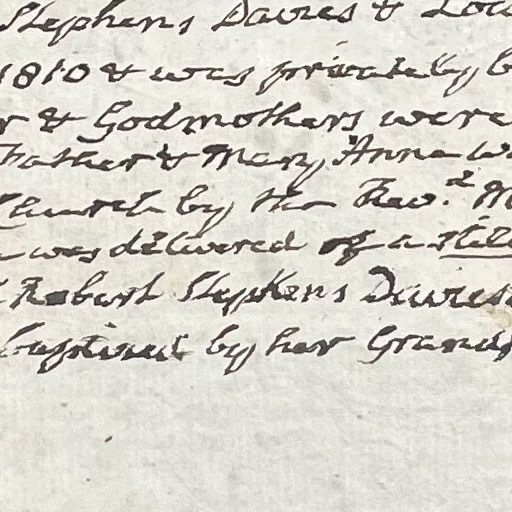 Stephens Davies & Lou
1810 & was privately b
r & Godmothers were
Father & Mary Anne W
Church by the Rev.d M
was delivered of a still
Robert Stephens Davies
baptised by her Grand